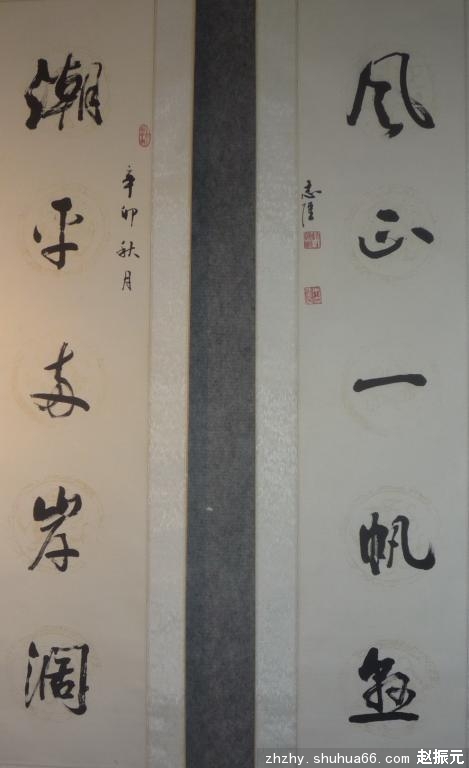 潮平两岸濶
辛卯秋月
风正一帆悬
志
zhzhy.shuhua66.com 赵振元